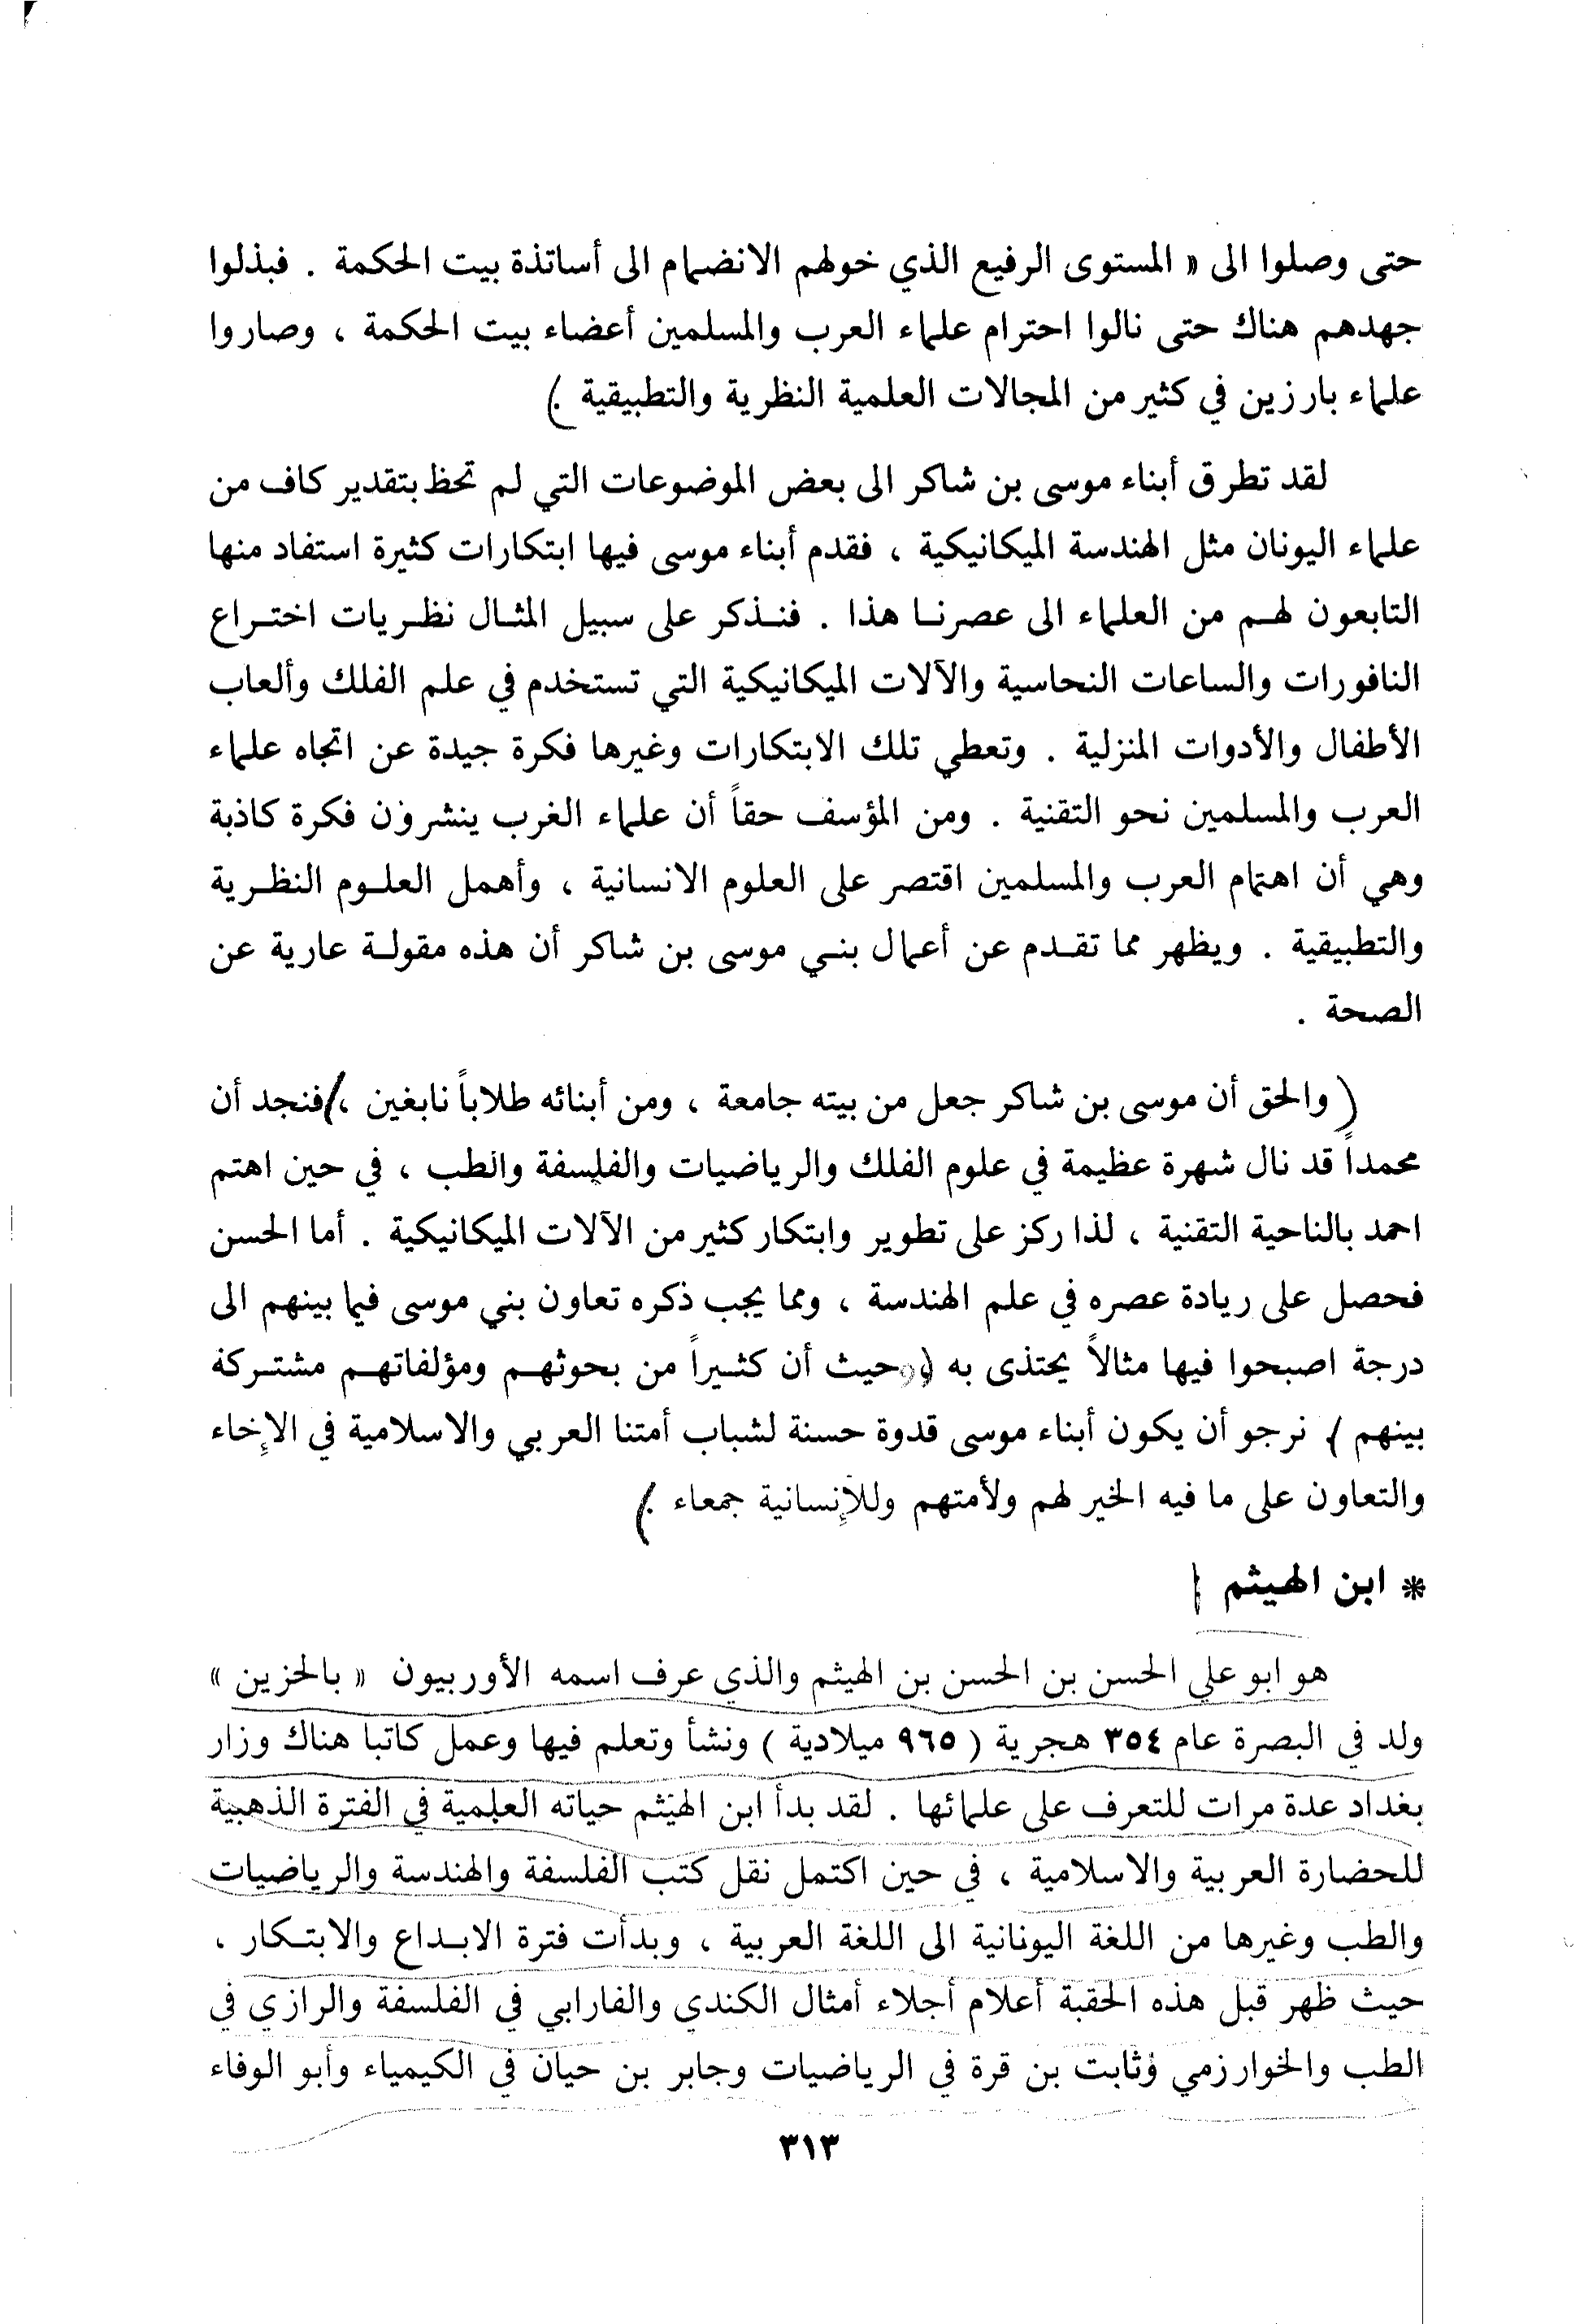 حتى وصلوا الى « المستوى الرفيع الذي خولهم الانضمام الى أساتذة بيت الحكمة . فبذلوا
جهدهم هناك حتى نالوا احترام علماء العرب والمسلمين أعضاء بيت الحكمة ، وصاروا
علماء بارزين في كثير من المجالات العلمية النظرية والتطبيقية .)
لقد تطرق أبناء موسى بن شاكر الى بعض الموضوعات التي لم تحظ بتقدير كاف من
علماء اليونان مثل الهندسة الميكانيكية ، فقدم أبناء موسى فيها ابتكارات كثيرة استفاد منها
التابعون لهم من العلماء الى عصرنا هذا . فنذكر على سبيل المثال نظريات اختراع
النافورات والساعات النحاسية والآلات الميكانيكية التي تستخدم في علم الفلك وألعاب
الأطفال والأدوات المنزلية . وتعطي تلك الابتكارات وغيرها فكرة جيدة عن اتجاه علماء
العرب والمسلمين نحو التقنية . ومن المؤسف حقاً أن علماء الغرب ينشرون فكرة كاذبة
وهي أن اهتمام العرب والمسلمين اقتصر على العلوم الانسانية ، وأهمل العلوم النظرية
والتطبيقية . ويظهر مما تقدم عن أعمال بني موسى بن شاكر أن هذه مقولة عارية عن
الصحة .
( والحق أن موسى بن شاكر جعل من بيته جامعة ، ومن أبنائه طلاباً نابغين ،) فنجد أن
محمداً قد نال شهرة عظيمة في علوم الفلك والرياضيات والفلسفة والطب ، في حين اهتم
احمد بالناحية التقنية ، لذا ركز على تطوير وابتكار كثير من الآلات الميكانيكية . أما الحسن
فحصل على ريادة عصره في علم الهندسة ، ومما يجب ذكره تعاون بني موسى فيما بينهم الى
درجة اصبحوا فيها مثالاً يحتذى به ( حيث أن كثيراً من بحوثهم ومؤلفاتهم مشتركة
بينهم ) نرجو أن يكون أبناء موسى قدوة حسنة لشباب أمتنا العربي والاسلامية في الإخاء
والتعاون على ما فيه الخير لهم ولأمتهم وللإنسانية جمعاء .)
* ابن الهيثم
هو ابو علي الحسن بن الحسن بن الهيثم والذي عرف اسمه الأوربيون « بالحزين »
ولد في البصرة عام ٣٥٤ هجرية ( ٩٦٥ ميلادية ) ونشأ وتعلم فيها وعمل كاتبا هناك وزار
بغداد عدة مرات للتعرف على علمائها . لقد بدأ ابن الهيثم حياته العلمية في الفترة الذهبية
للحضارة العربية والاسلامية ، في حين اكتمل نقل كتب الفلسفة والهندسة والرياضيات
والطب وغيرها من اللغة اليونانية الى اللغة العربية ، وبدأت فترة الابداع والابتكار ،
حيث ظهر قبل هذه الحقبة أعلام أجلاء أمثال الكندي والفارابي في الفلسفة والرازي في
الطب والخوارزمي وثابت بن قرة في الرياضيات وجابر بن حيان في الكيمياء وأبو الوفاء
٣١٣